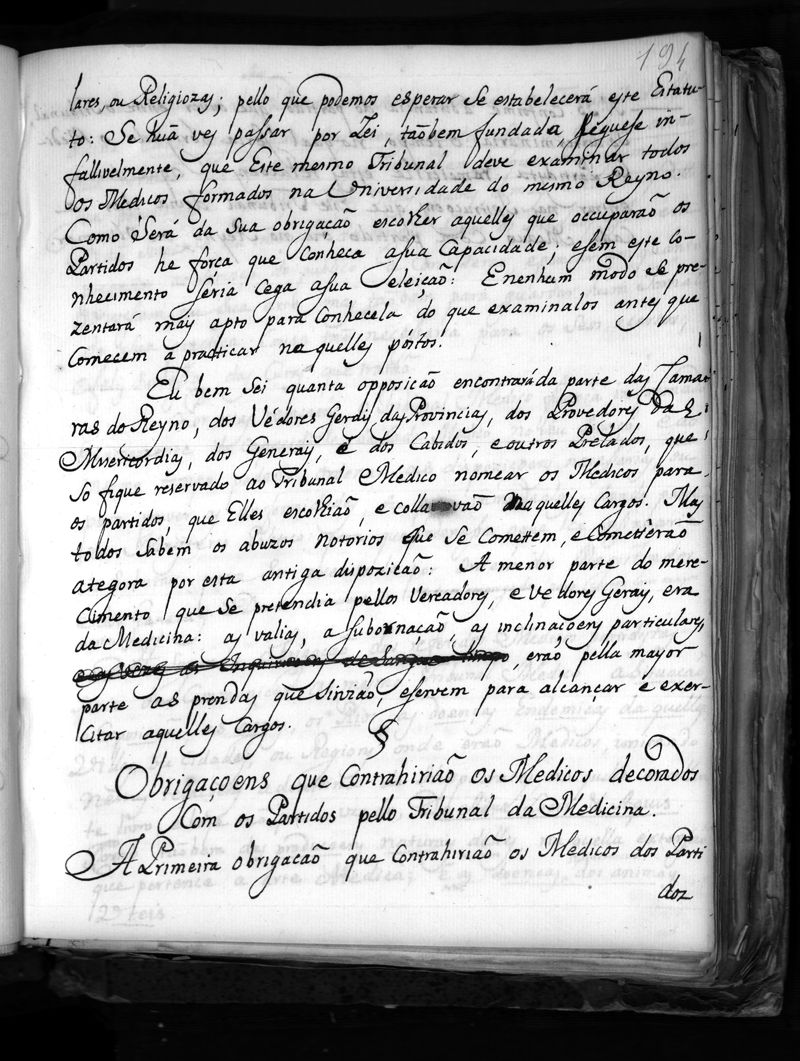 194
lares, ou Religiozas; pello que podemos esperar se estabelecerá este Estatu-
to: Se huã ves passar por Lei, taõbem fundada, seguese in-
fallivelmente, que Este mesmo Tribunal deve examinar todos
Os Medicos formados na Universidade do mesmo Reyno.
Como Será da sua obrigaçaõ escolher aquelles que occuparaõ os
Partidos he força que Conheca asua Capacidade; esem este co-
nhecimento seria Cega asua eleiçaõ: Enenhum modo se pre-
zentará mais apto para Conhecela do que examinalos antes que
Comecem a practicar naquelles póstos.
Eu bem Sei quanta opposicaõ encontrará da parte das Cama-
ras do Reyno, dos Védores Gerais das Provincias, dos Provedores da
Misericordia, dos Generais, e dos Cabidos, eoutros Prelados, que
só fique reservado ao Tribunal Medico nomear os Medicos para
os partidos, que Elles escolhiaõ, e collavaõ naquelles Cargos. Mas
todos Sabem os abuzos notorios que se Comettem, e Cometteraõ
ategora por esta antiga dispozicaõ: A menor parte do mere-
cimento que Se pretendia pellos Vereadores, eVedores Gerais, era
da Medicina: as valias, a subornaçaõ, as inclinaçoens particulares,
eraõ pella mayor
parte as prendas que Sirviaõ, eservem para alcançar e exer-
citar aquelles Cargos.
§
Obrigaçoens que Contrahiriaõ Os Medicos decorados
Com os Partidos pello Tribunal da Medicina.
A Primeira obrigacaõ que Contrahiriaõ os Medicos dos Parti
doz